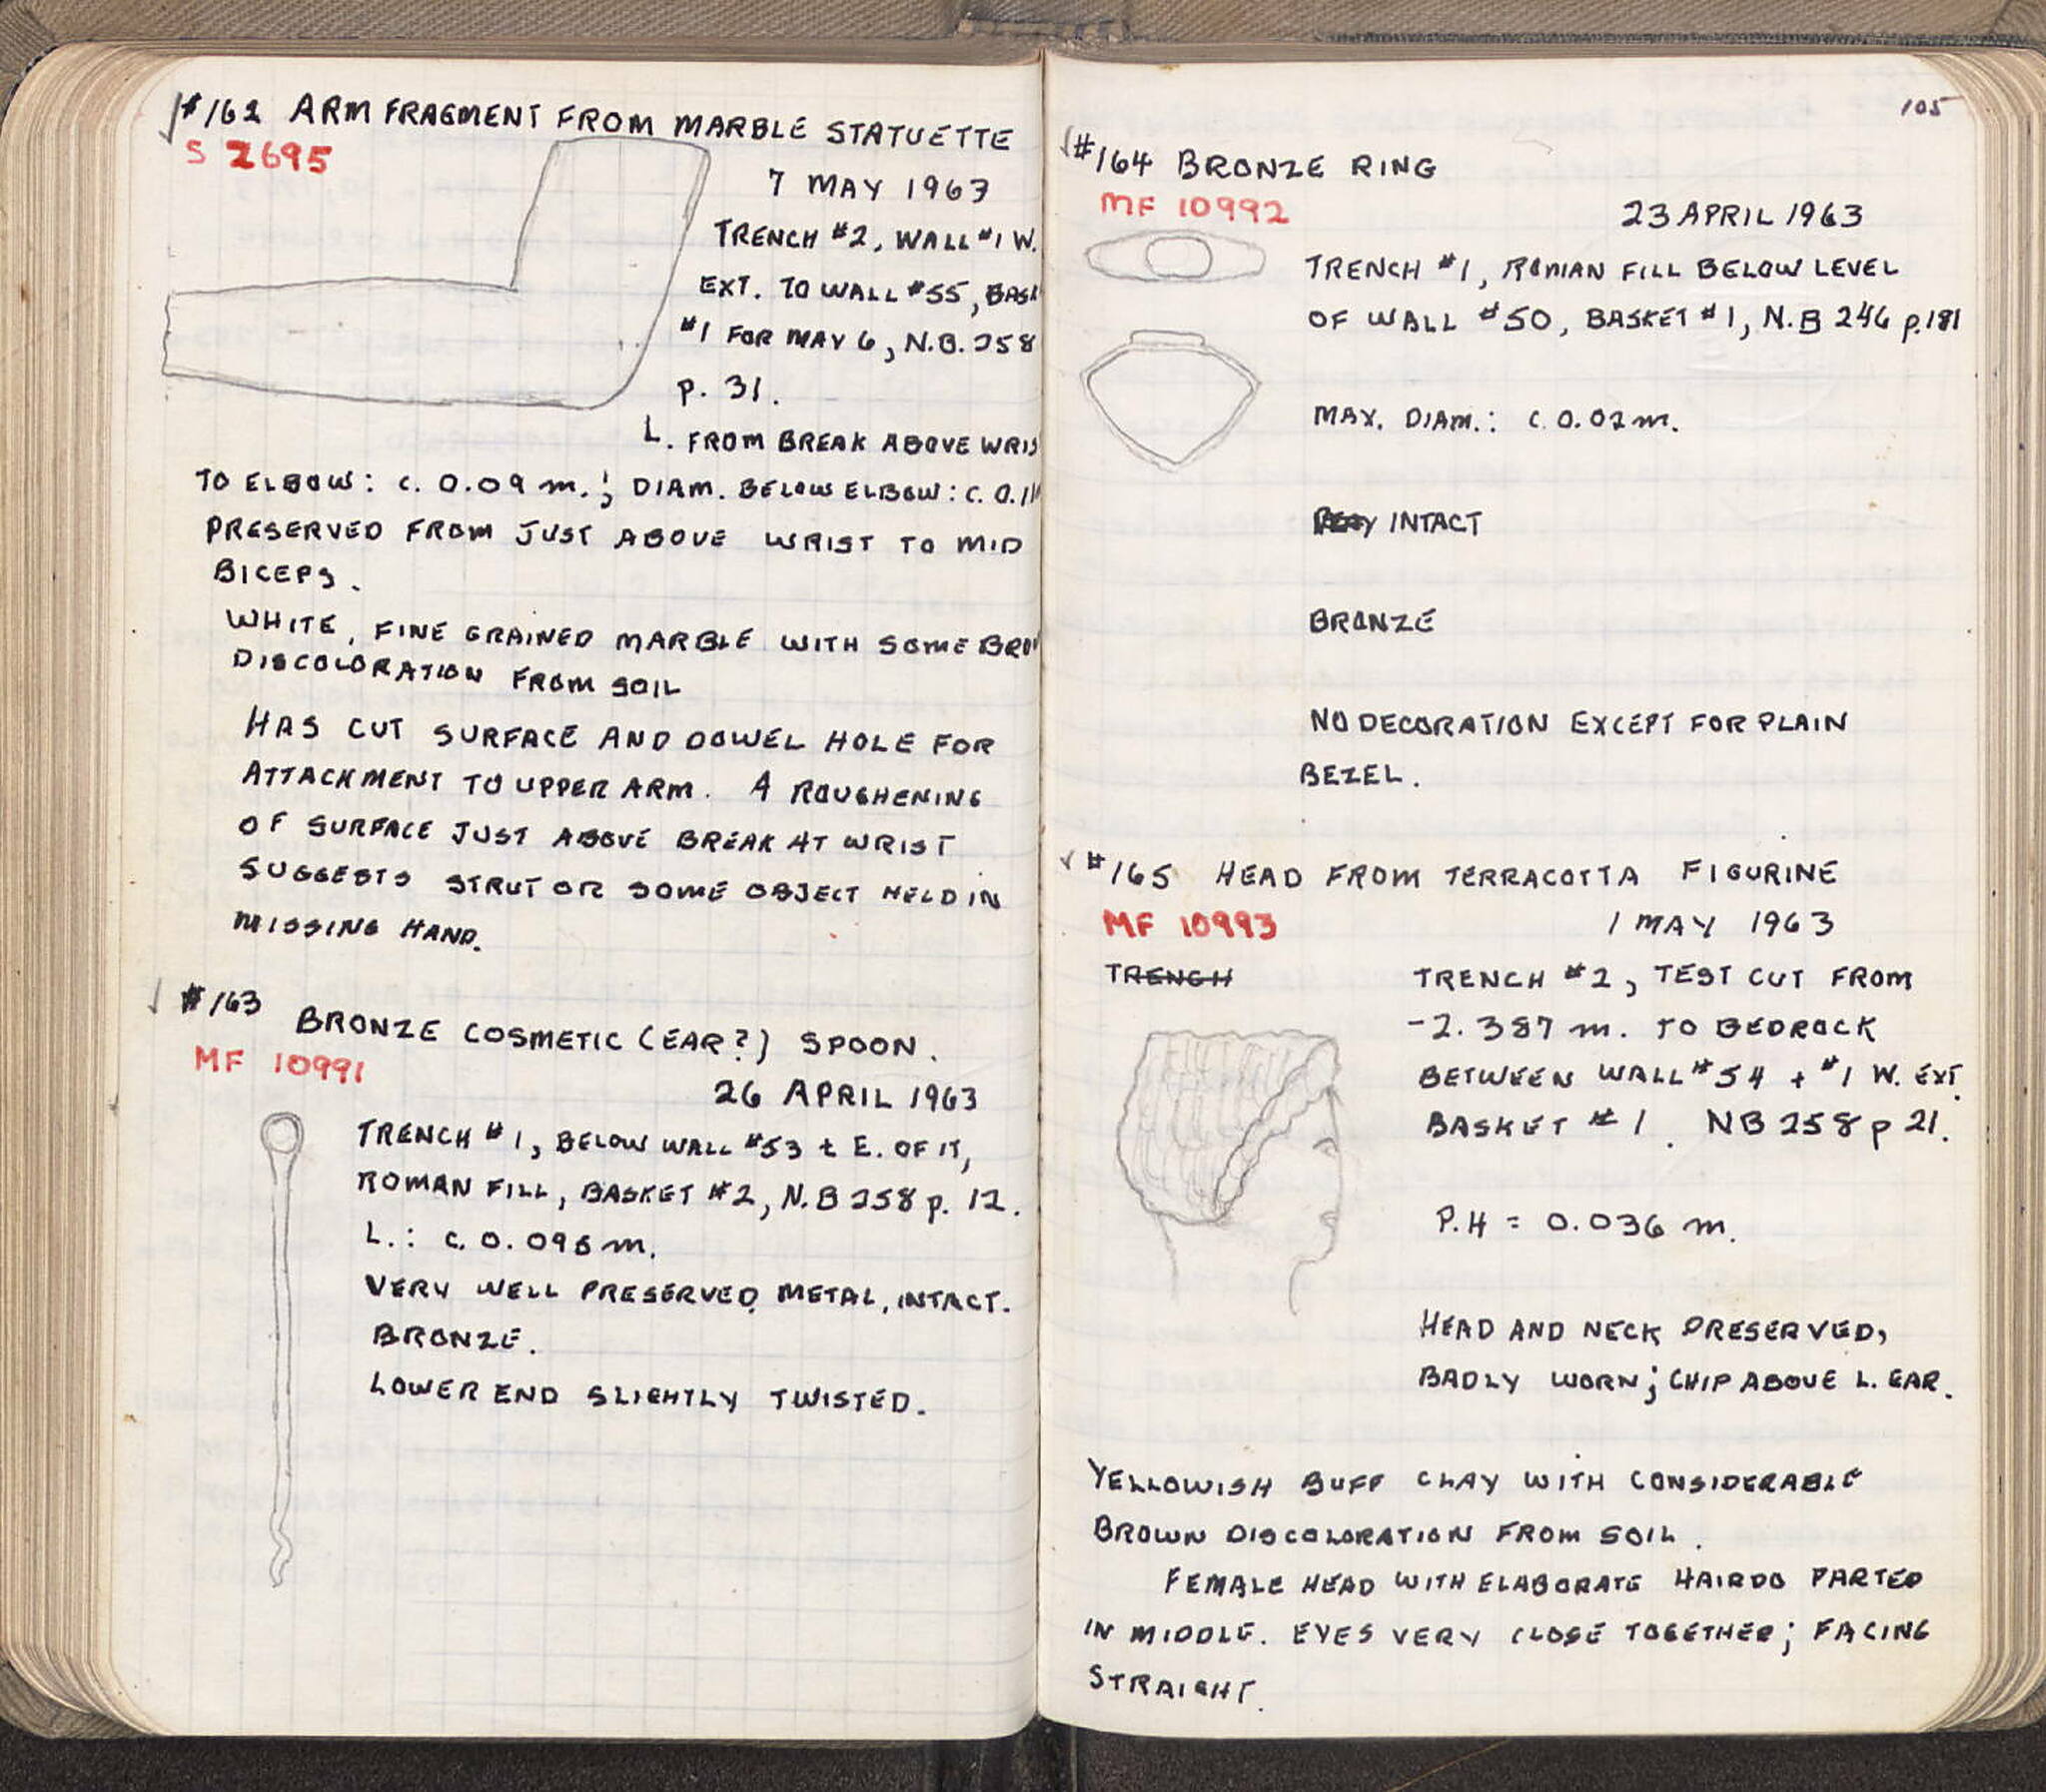 #162 ARM FRAGMENT FROM MARBLE STATUETTE
S 2695
7 MAY 1963
TRENCH #2, WALL #1 W.
EXT. TO WALL #55, BASK
#1 FOR MAY 6, N.B. 258
p. 31.
L. FROM BREAK ABOVE WRIS
TO ELBOW: c. 0.09 m.; DIAM. BELOW ELBOW: C. 0.
PRESERVED FROM JUST ABOVE WRIST TO MID
BICEPS.
WHITE, FINE GRAINED MARBLE WITH SOME BRO
DISCOLORATION FROM SOIL
HAS CUT SURFACE AND DOWEL HOLE FOR
ATTACHMENT TO UPPER ARM. A ROUGHENING
OF SURFACE JUST ABOVE BREAK AT WRIST
SUGGESTS STRUT OR SOME OBJECT HELD IN
MISSING HAND.
#163
BRONZE COSMETIC (EAR?) SPOON.
MF 10991
26 APRIL 1963
TRENCH #1, BELOW WALL #53 + E. OF IT,
ROMAN FILL, BASKET #2, N.B 258 p. 12.
L.: c. 0.095 m.
VERY WELL PRESERVED METAL, INTACT.
BRONZE.
LOWER END SLIGHTLY TWISTED.
105
#164 BRONZE RING
MF 10992
23 APRIL 1963
TRENCH #1, ROMAN FILL BELOW LEVEL
OF WALL #50, BASKET #1, N.B 246 p.181
MAX. DIAM.: c. 0.02 m.
INTACT
BRONZE
NO DECORATION EXCEPT FOR PLAIN
BEZEL.
#165 HEAD FROM TERRACOTTA FIGURINE
MF 10993
1 MAY 1963
TRENCH
TRENCH #2, TEST CUT FROM
-2.387 m. TO BEDROCK
BETWEEN WALL #54 + #1 W. EXT.
BASKET #1. NB 258 p 21.
P.H = 0.036 m.
HEAD AND NECK PRESERVED,
BADLY WORN; CHIP ABOVE L. EAR.
YELLOWISH BUFF CLAY WITH CONSIDERABLE
BROWN DISCOLORATION FROM SOIL.
FEMALE HEAD WITH ELABORATE HAIRDO PARTED
IN MIDDLE. EYES VERY CLOSE TOGETHER; FACING
STRAIGHT.